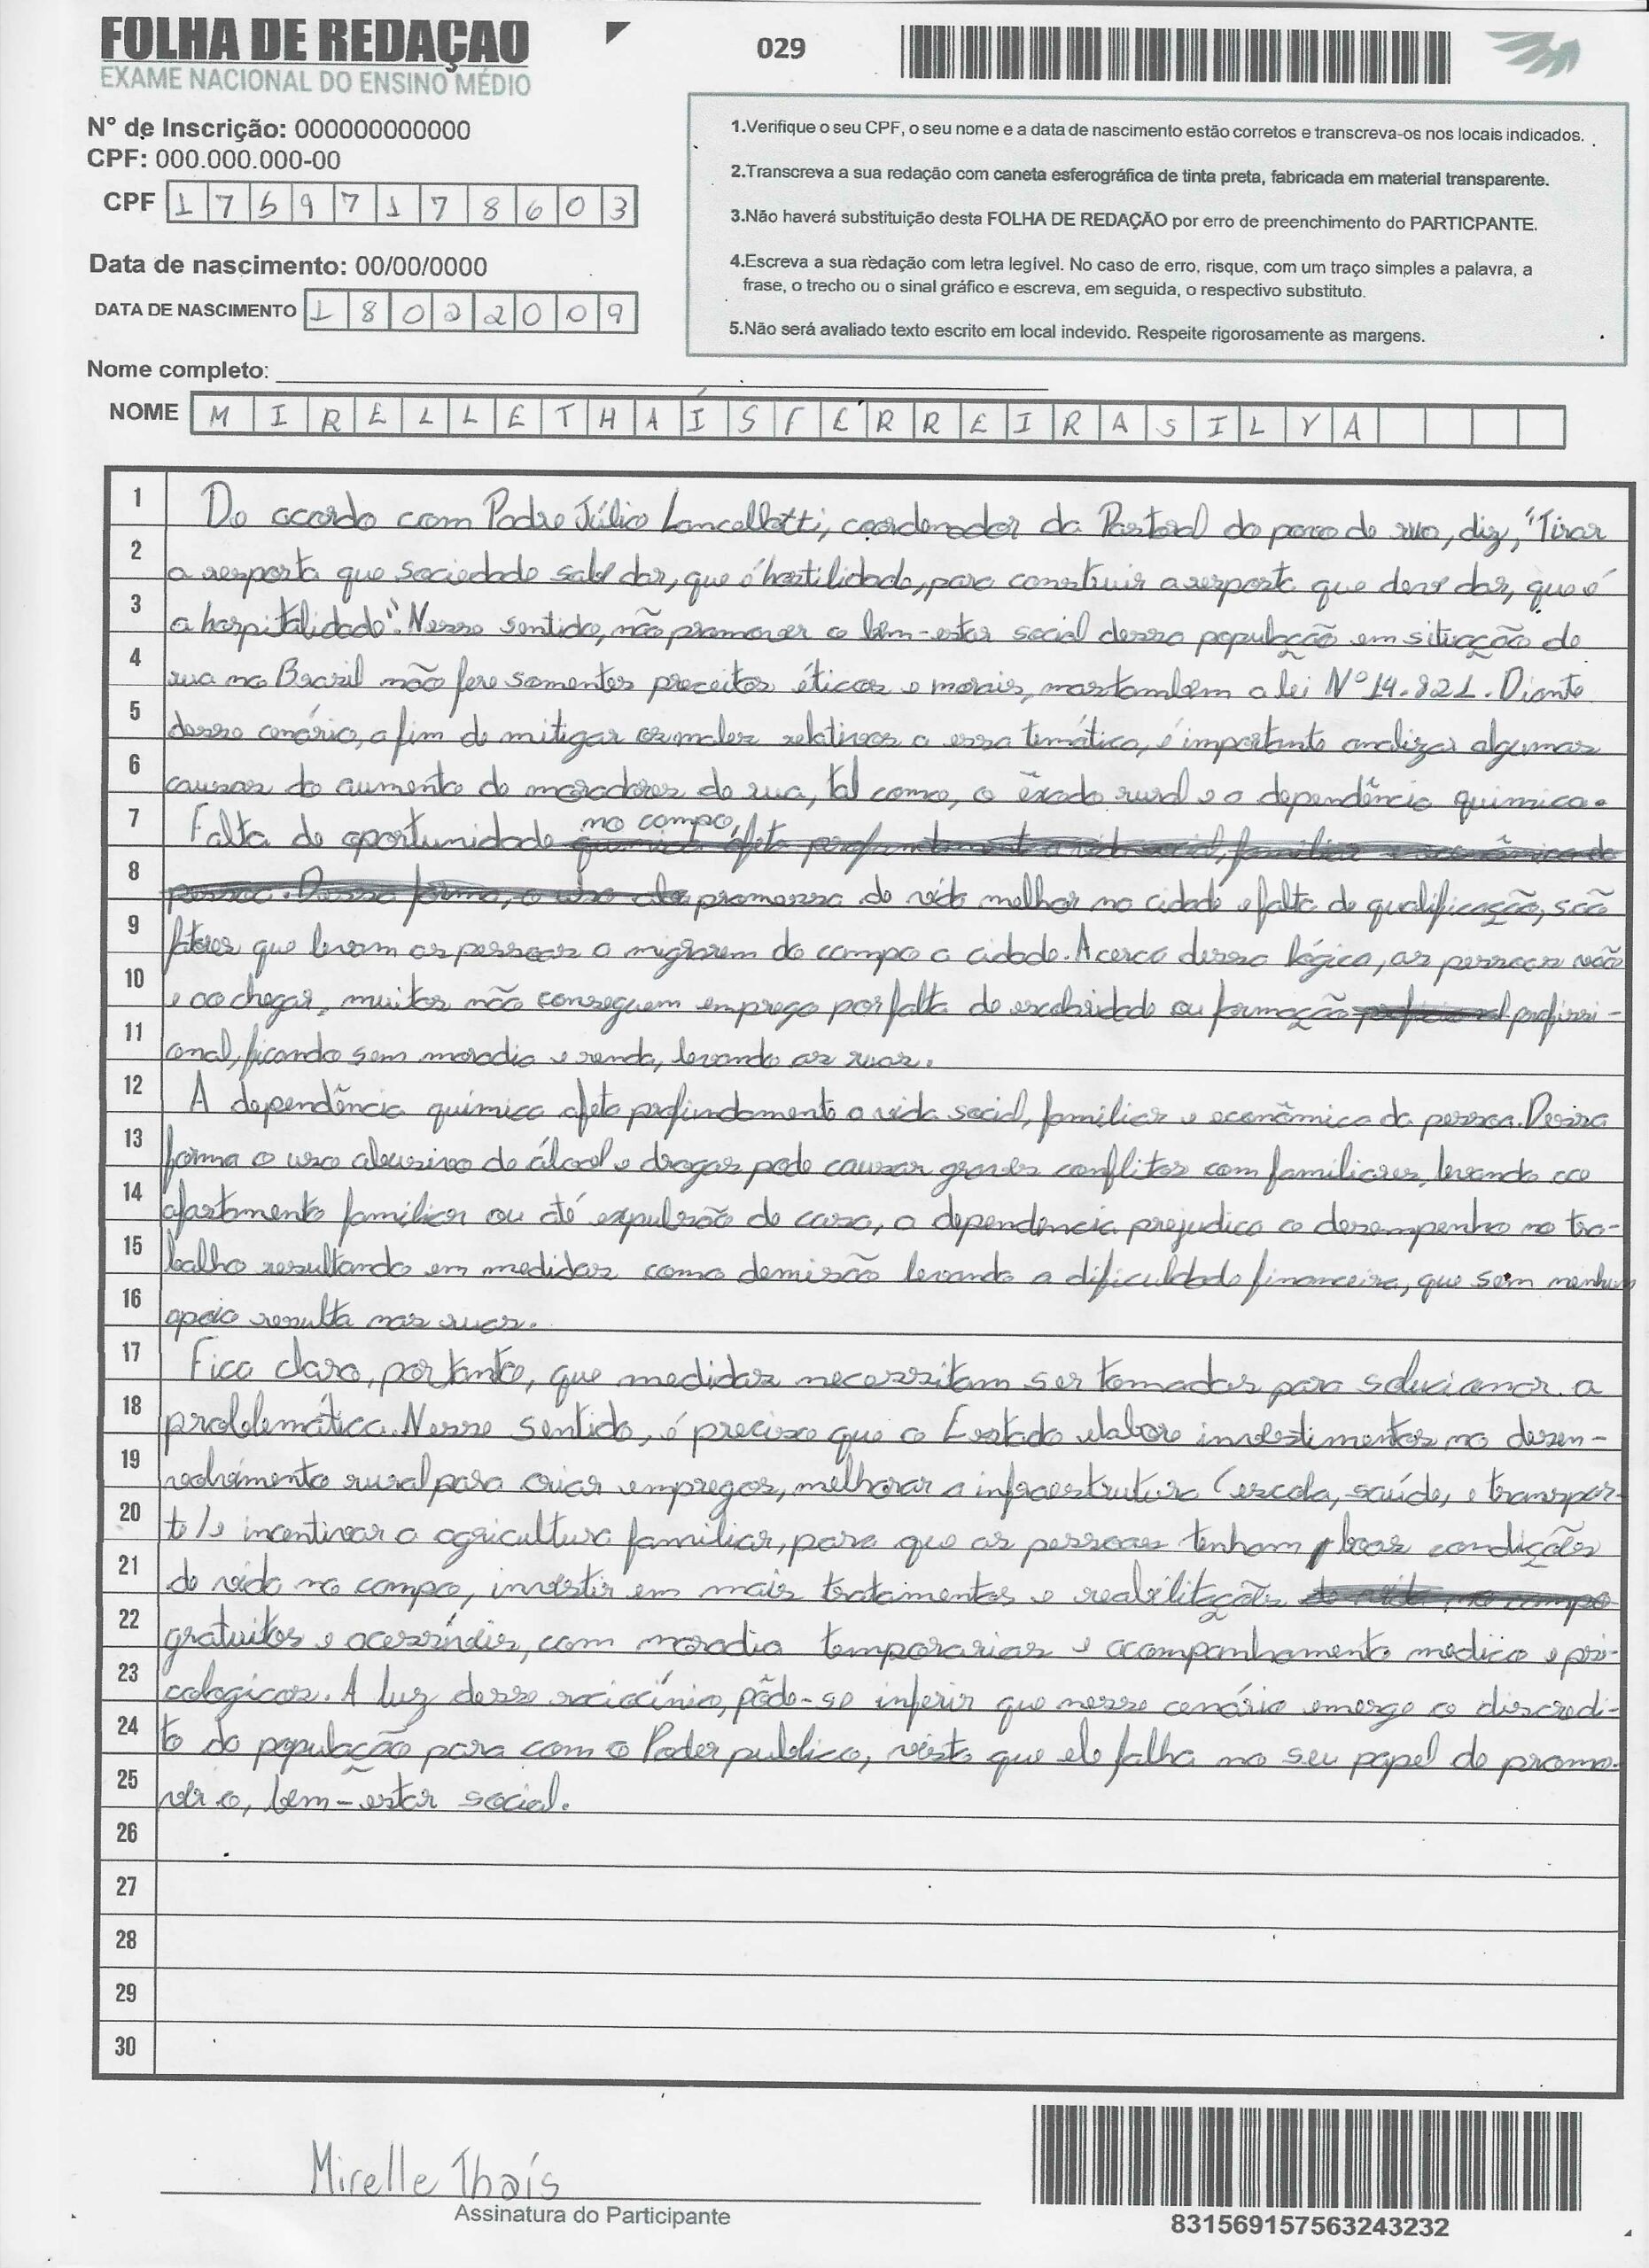 FOLHA DE REDAÇÃO
EXAME NACIONAL DO ENSINO MÉDIO
029
Nº de Inscrição: 000000000000
CPF: 000.000.000-00
CPF 17597178603
Data de nascimento: 00/00/0000
DATA DE NASCIMENTO 18022009
1.Verifique o seu CPF, o seu nome e a data de nascimento estão corretos e transcreva-os nos locais indicados.
2.Transcreva a sua redação com caneta esferográfica de tinta preta, fabricada em material transparente.
3.Não haverá substituição desta FOLHA DE REDAÇÃO por erro de preenchimento do PARTICPANTE.
4.Escreva a sua redação com letra legível. No caso de erro, risque, com um traço simples a palavra, a
frase, o trecho ou o sinal gráfico e escreva, em seguida, o respectivo substituto.
5.Não será avaliado texto escrito em local indevido. Respeite rigorosamente as margens.
Nome completo:
NOME MIRELLE THAÍS FERREIRA SILVA
1 De acordo com Padre Júlio Lancellotti, coordenador da Pastoral do povo de rua, diz, "Tirar
2 a resposta que sociedade sabe dar, que é hostilidade, para construir a resposta que deve dar, que é
3 a hospitalidade". Nesse sentido, não promover o bem-estar social dessa população em situação de
4 rua no Brasil não fere somentes preceitos éticos e morais, mas também a lei Nº 14.821. Diante
5 desse cenário, a fim de mitigar os males relativos a essa temática, é importante analizar algumas
6 causas do aumento de moradores de rua, tal como, o êxodo rural e a dependência química.
7 Falta de oportunidade no campo, química afeta profundamente a vida social, familiar e econômica da
8 pessoa. Dessa forma, o uso promessa de vida melhor na cidade e falta de qualificação, são
9 fatores que levam as pessoas a migrarem do campo a cidade. Acerca dessa lógica, as pessoas vão
10 e ao chegar, muitos não conseguem emprego por falta de escolaridade ou formação profissi-
11 onal, ficando sem moradia e renda, levando as ruas.
12 A dependência química afeta profundamente a vida social, familiar e econômica da pessoa. Dessa
13 forma o uso abusivo de álcool e drogas pode causar grandes conflitos com familiares, levando ao
14 afastamento familiar ou até expulsão de casa, a dependencia prejudica o desempenho no tra-
15 balho resultando em medidas como demissão levando a dificuldade financeira, que sem nenhum
16 apoio resulta nas ruas.
17 Fica claro, portanto, que medidas necessitam ser tomadas para solucionar a
18 problemática. Nesse sentido, é preciso que o Estado elabore investimentos no desen-
19 volvimento rural para criar empregos, melhorar a infraestrutura (escola, saúde, e transpor-
20 te) e incentivar a agricultura familiar, para que as pessoas tenham boas condições
21 de vida no campo, investir em mais tratamentos e reabilitações de vida no campo
22 gratuitos e acessíveis, com moradia temporarias e acompanhamento medico e psi-
23 cologicos. A luz desse raciocínio, pôde-se inferir que nesse cenário emerge o discredi-
24 to da população para com o Poder publico, visto que ele falha no seu papel de promo-
25 ver o, bem-estar social.
26
27
28
29
30
Mirelle Thaís
Assinatura do Participante
831569157563243232